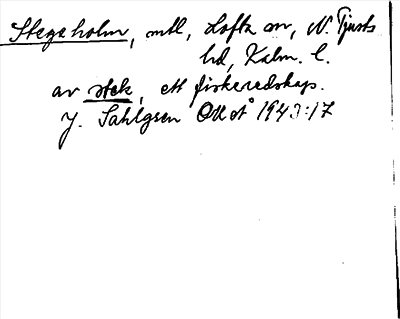 Stegeholm, mtl, Lofta sn, N. Tjusts
hd, Kalm. l.
av stek, ett fiskeredskap.
J. Sahlgren OUÅ 1943:17